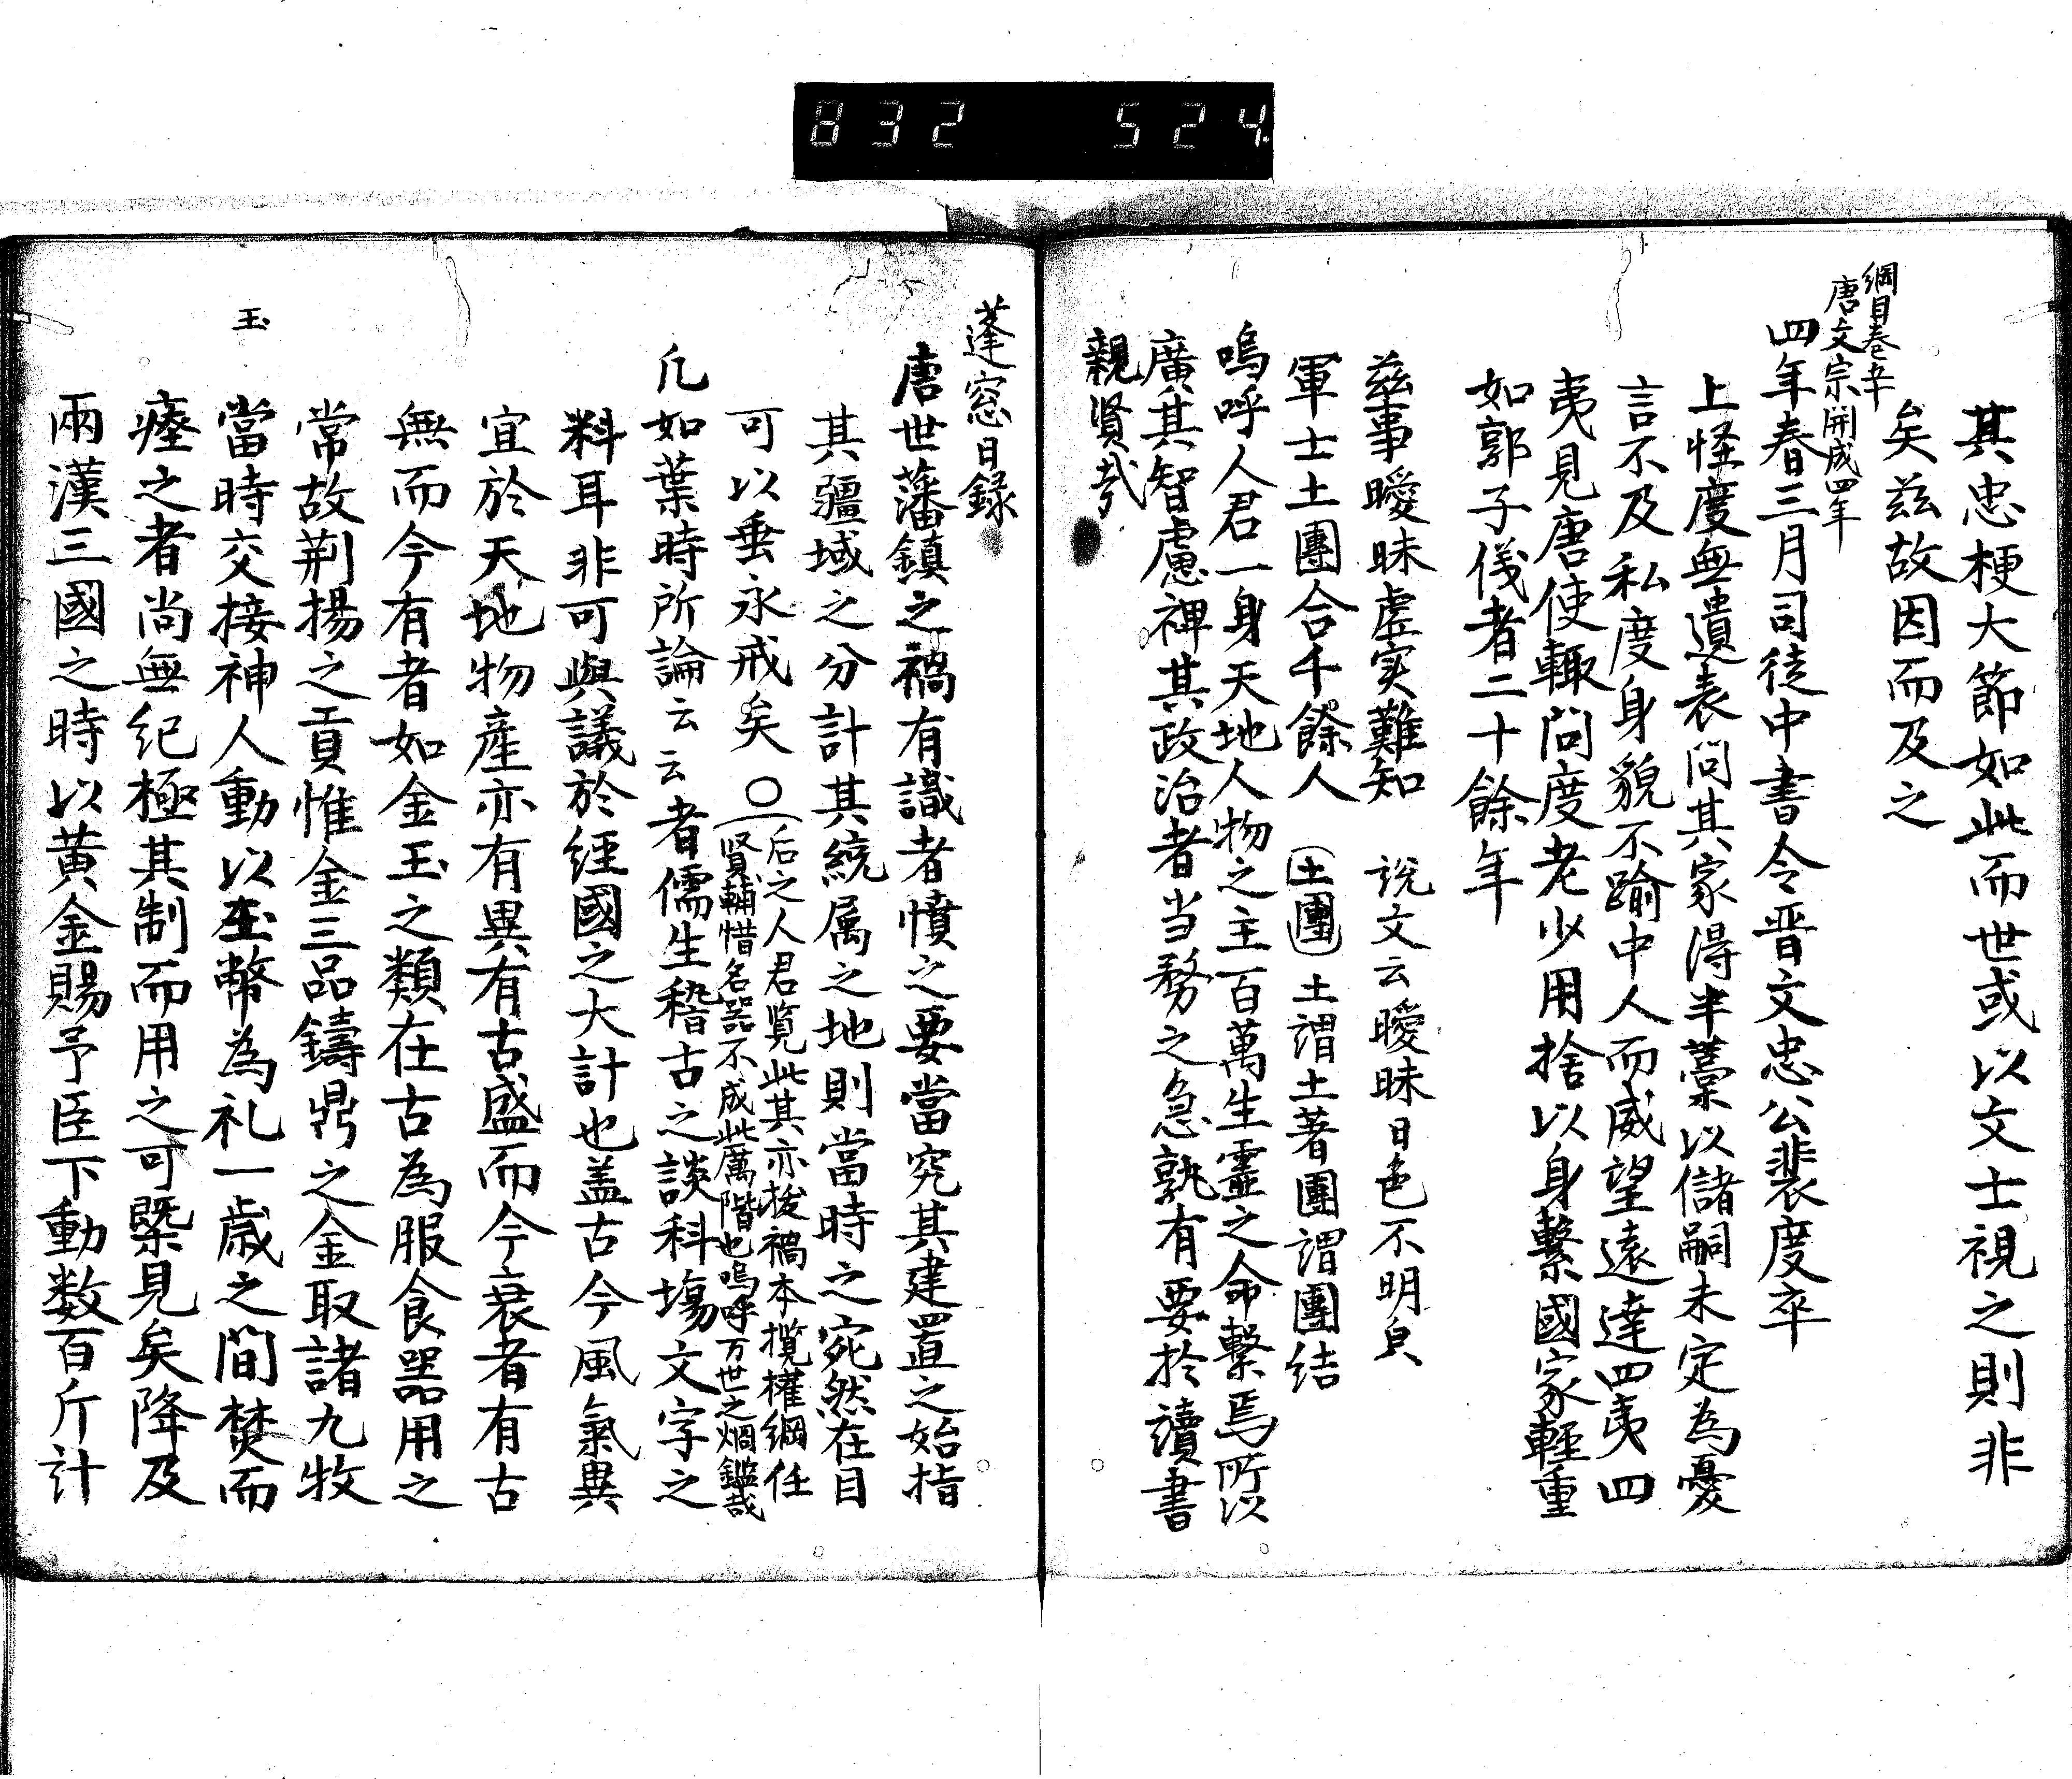 832 524
其忠梗大節如此而世或以文士視之則非
矣茲故因而及之
綱目卷辛
唐文宗開成四年
四年春三月司徒中書令晋文忠公裴度卒
上怪度無遺表問其家得半藁以儲嗣未定為憂
言不及私度身貌不踰中人而威望遠達四夷四
夷見唐使輙問度老少用捨以身繫國家輕重
如郭子儀者二十餘年
茲事曖昧虛实難知 説文云曖昧日色不明皃
軍士土團合千餘人 土團 土謂土著團謂團結
嗚呼人君一身天地人物之主百萬生靈之命繫焉所以
廣其智慮裨其政治者当務之急孰有要於讀書
親賢哉
蓬窓日録
唐世藩鎮之禍有識者憤之要當究其建置之始指
其疆域之分計其統属之地則當時之宛然在目
可以垂永戒矣○
后之人君览此其亦拔禍本攬權綱任
贤輔惜名器不成此厲階也嗚呼万世之烱鑑哉
凡如葉時所論云云者儒生稽古之談科塲文字之
料耳非可與議於經國之大計也盖古今風氣異
宜於天地物産亦有異有古盛而今衰者有古
無而今有者如金玉之類在古為服食器用之
常故荆揚之貢惟金三品鑄鼎之金取諸九牧
玉
當時交接神人動以玉幣為礼一歳之間焚而
瘞之者尚無紀極其制而用之可槩見矣降及
兩漢三國之時以黄金賜予臣下動数百斤計